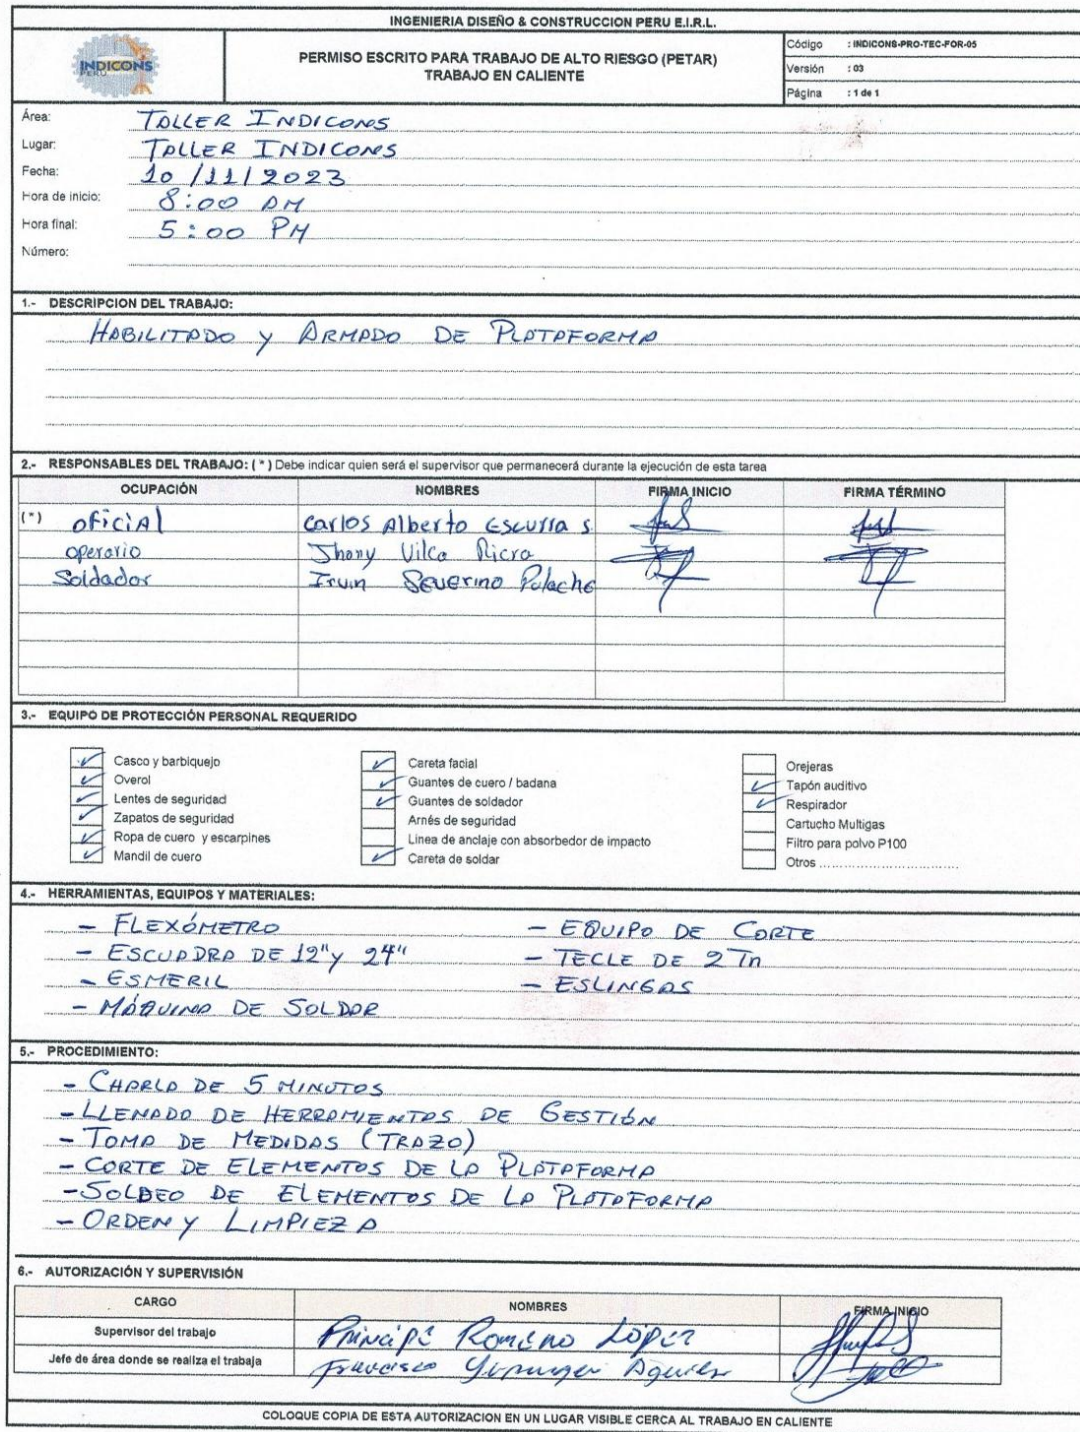 INGENIERIA DISEÑO & CONSTRUCCION PERU E.I.R.L.
INDICONS
PERU
PERMISO ESCRITO PARA TRABAJO DE ALTO RIESGO (PETAR)
TRABAJO EN CALIENTE
Código : INDICONS-PRO-TEC-FOR-05
Versión : 03
Página : 1 de 1
Área: TALLER INDICONS
Lugar: TALLER INDICONS
Fecha: 10/11/2023
Hora de inicio: 8:00 AM
Hora final: 5:00 PM
Número:
1.- DESCRIPCION DEL TRABAJO:
HABILITADO Y ARMADO DE PLATAFORMA
2.- RESPONSABLES DEL TRABAJO: ( * ) Debe indicar quien será el supervisor que permanecerá durante la ejecución de esta tarea
OCUPACIÓN NOMBRES FIRMA INICIO FIRMA TÉRMINO
(*) oficial Carlos Alberto Escurra S.
operario Jhony Vilca Ricra
Soldador Irvin Severino Palacho
3.- EQUIPO DE PROTECCIÓN PERSONAL REQUERIDO
✓ Casco y barbiquejo
✓ Overol
✓ Lentes de seguridad
✓ Zapatos de seguridad
✓ Ropa de cuero y escarpines
✓ Mandil de cuero
✓ Careta facial
✓ Guantes de cuero / badana
✓ Guantes de soldador
Arnés de seguridad
Linea de anclaje con absorbedor de impacto
✓ Careta de soldar
Orejeras
✓ Tapón auditivo
✓ Respirador
Cartucho Multigas
Filtro para polvo P100
Otros ....................................
4.- HERRAMIENTAS, EQUIPOS Y MATERIALES:
- FLEXÓMETRO
- ESCUADRA DE 12" y 24"
- ESMERIL
- MÁQUINA DE SOLDAR
- EQUIPO DE CORTE
- TECLE DE 2 Tn
- ESLINGAS
5.- PROCEDIMIENTO:
- CHARLA DE 5 MINUTOS
- LLENADO DE HERRAMIENTAS DE GESTIÓN
- TOMA DE MEDIDAS (TRAZO)
- CORTE DE ELEMENTOS DE LA PLATAFORMA
- SOLDEO DE ELEMENTOS DE LA PLATAFORMA
- ORDEN Y LIMPIEZA
6.- AUTORIZACIÓN Y SUPERVISIÓN
CARGO NOMBRES FIRMA INICIO
Supervisor del trabajo Principe Romero López
Jefe de área donde se realiza el trabaja Francisco
COLOQUE COPIA DE ESTA AUTORIZACION EN UN LUGAR VISIBLE CERCA AL TRABAJO EN CALIENTE